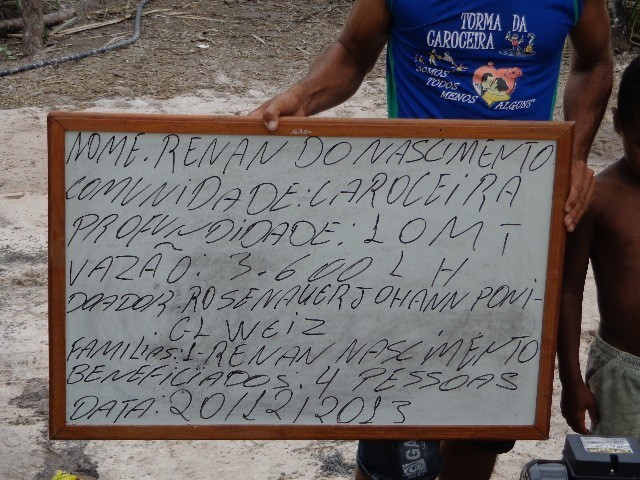 TORMA DA
CAROCEIRA
SOMOS
TODOS
MENOS
ALGUNS
NOME. RENAN DO NASCIMENTO
COMUNIDADE: CAROCEIRA
PROFUNDIDADE: 10 MT
VAZÃO: 3.600 L H
DOADOR. ROSENAUER JOHANN PONI-
GL WEIZ
FAMILIAS: 1- RENAN NASCIMENTO
BENEFICIADOS: 4 PESSOAS
DATA: 20/12/2013